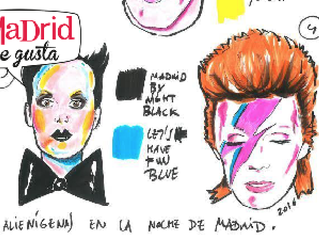 MaDrid
e gusta
MADRID
BY
NIGHT
BLACK
LET'S
HAVE
FUN
BLUE
4
2016
ALIENÍGENAS EN LA NOCHE DE MADRID.